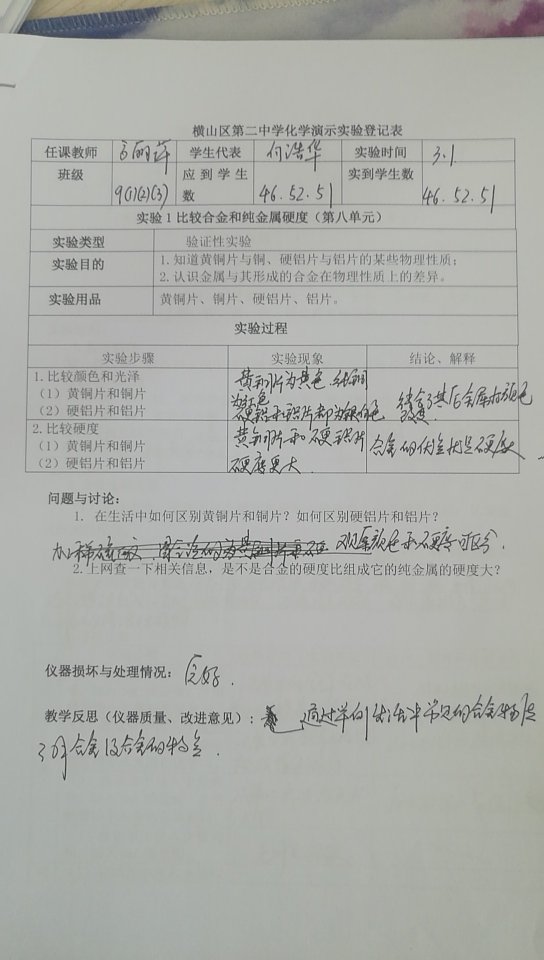 横山区第二中学化学演示实验登记表
任课教师 学生代表 付浩华 实验时间 3.1
班级 9(1)(2)(3) 应到学生数 46.52.51 实到学生数 46.52.51
实验1比较合金和纯金属硬度（第八单元）
实验类型 验证性实验
实验目的 1.知道黄铜片与铜、硬铝片与铝片的某些物理性质；
2.认识金属与其形成的合金在物理性质上的差异。
实验用品 黄铜片、铜片、硬铝片、铝片。
实验过程
实验步骤 实验现象 结论、解释
1.比较颜色和光泽
（1）黄铜片和铜片
（2）硬铝片和铝片
黄铜片为黄色 纯铜
为红色
硬铝和铝片都为银白色
2.比较硬度
（1）黄铜片和铜片
（2）硬铝片和铝片
黄铜片和硬铝片
硬度更大.
合金的 硬度大
问题与讨论：
1. 在生活中如何区别黄铜片和铜片？如何区别硬铝片和铝片？
观察颜色和硬度可区分.
2.上网查一下相关信息，是不是合金的硬度比组成它的纯金属的硬度大？
仪器损坏与处理情况： 完好.
教学反思（仪器质量、改进意见）： 通过 生活中常见的合金物质
合金及合金的特点.